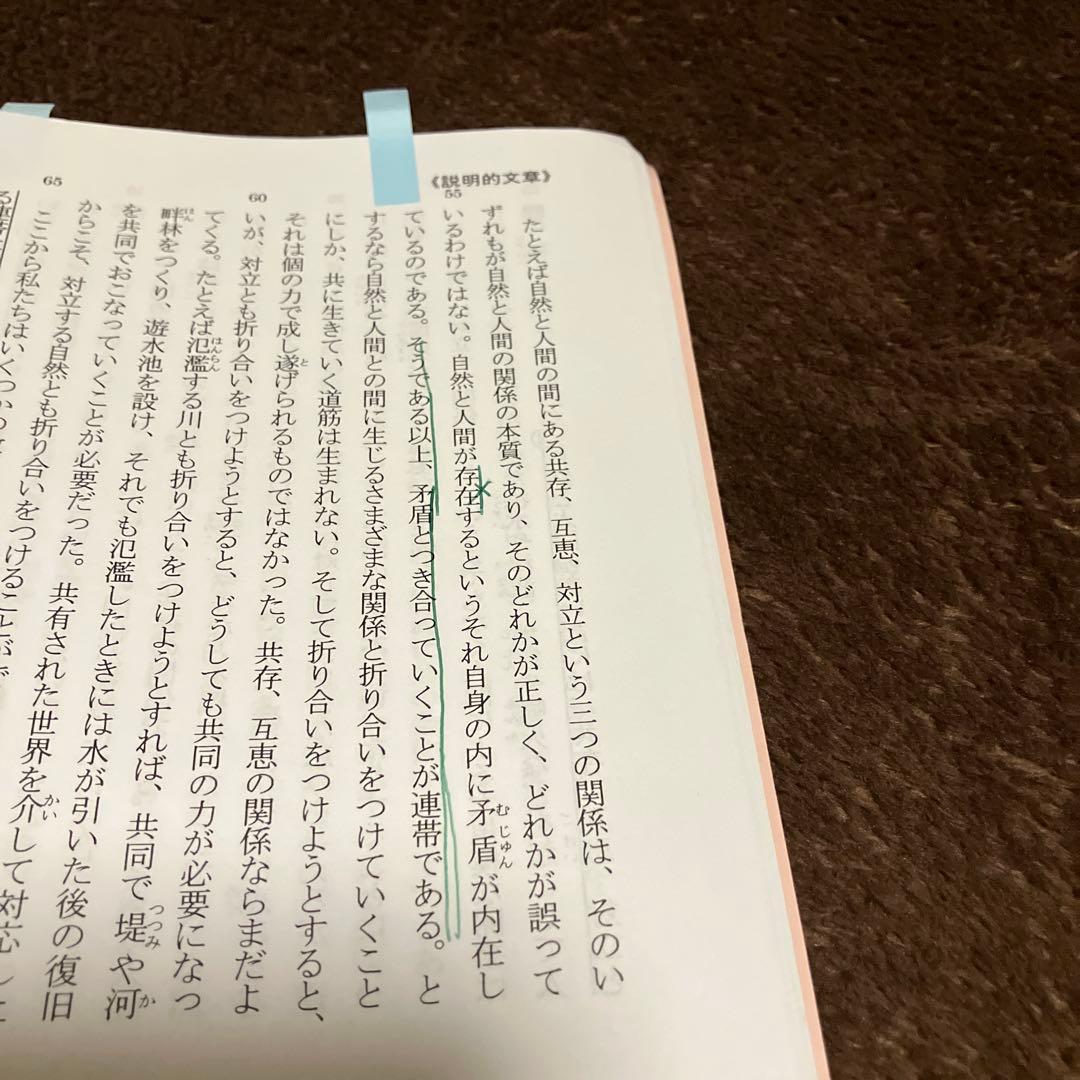 《説明的文章》
たとえば自然と人間の間にある共存、互恵、対立という三つの関係は、そのい
55
ずれもが自然と人間の関係の本質であり、そのどれかが正しく、どれかが誤って
いるわけではない。自然と人間が存在するというそれ自身の内に矛盾が内在し
むじゅん
ているのである。そうである以上、矛盾とつき合っていくことが連帯である。と
するなら自然と人間との間に生じるさまざまな関係と折り合いをつけていくこと
にしか、共に生きていく道筋は生まれない。そして折り合いをつけようとすると、
それは個の力で成し遂げられるものではなかった。共存、互恵の関係ならまだよ
と
60
いが、対立とも折り合いをつけようとすると、どうしても共同の力が必要になっ
てくる。たとえば氾濫する川とも折り合いをつけようとすれば、共同で堤や河
はんらん
つつみ
か
畔林をつくり、遊水池を設け、それでも氾濫したときには水が引いた後の復旧
はん
を共同でおこなっていくことが必要だった。共有された世界を介して対応し
かい
からこそ、対立する自然とも折り合いをつけることが
65
ここから私たちはいくつかの